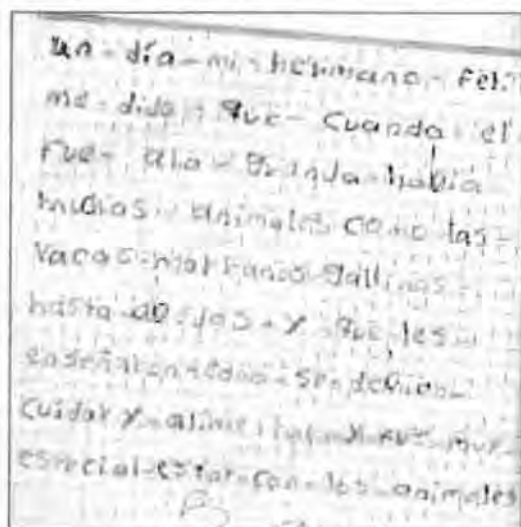 un - día - mi - hermano - Fel.
me - dido - que - cuando - el
fue - ala - Granda - había
muchos - animales como las -
vacas - marranos - gallinas -
hasta - y - que - les -
enseñaron - como - se - debían -
cuidar y - alimentar - y - fue - muy -
especial - estar - con - los - animales